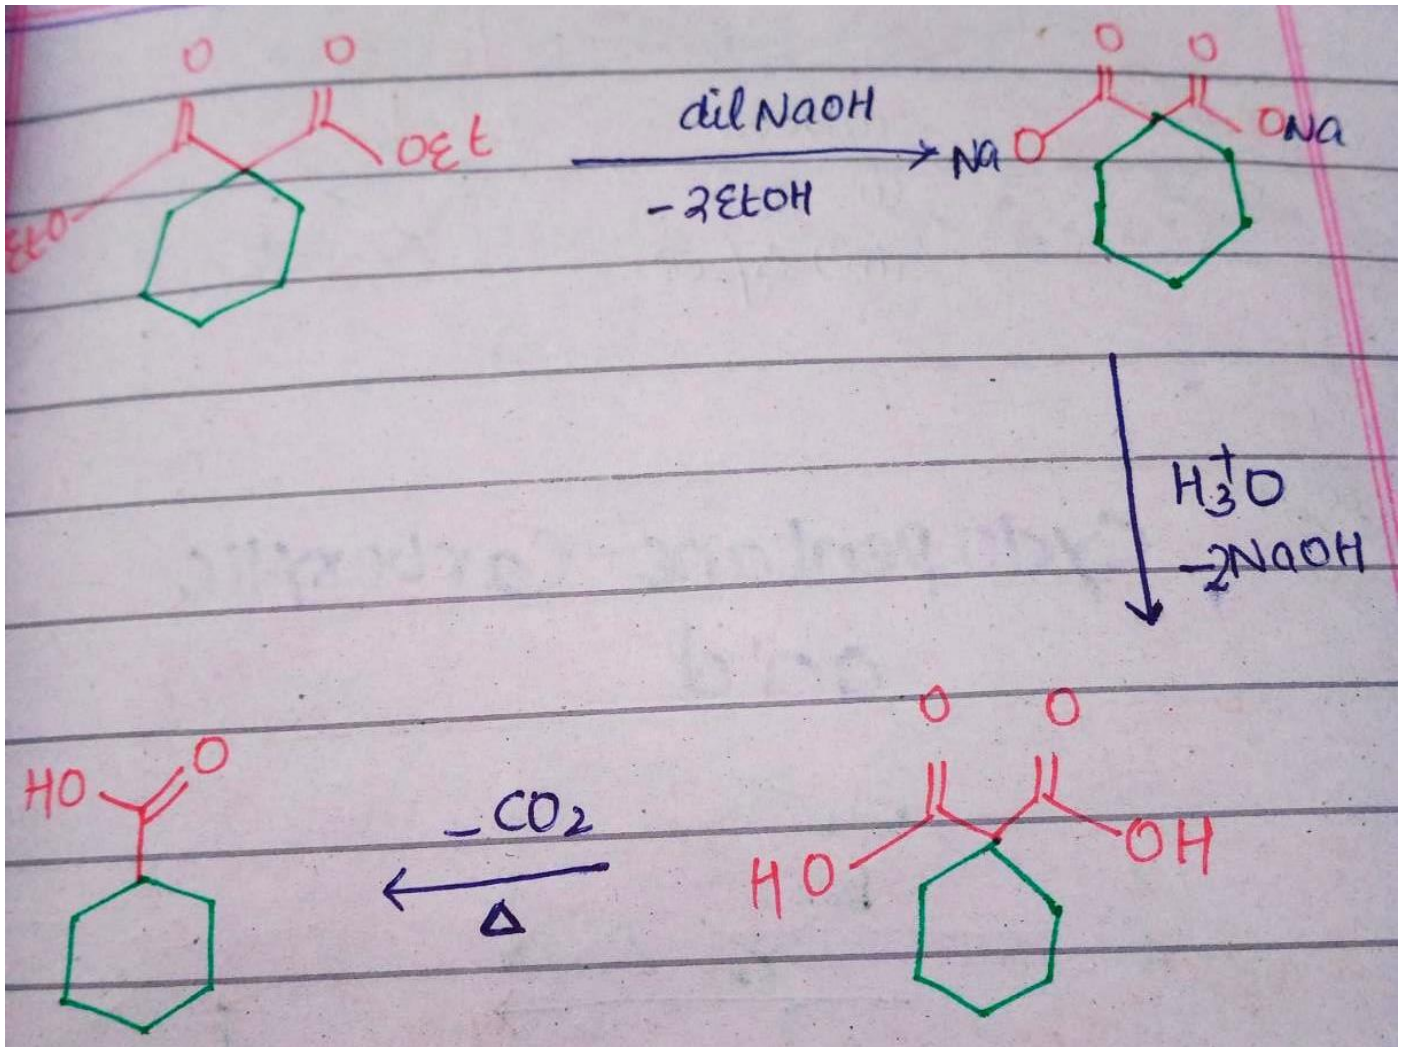 O O
EtO OEt
dil NaOH
-2EtOH
O O
NaO ONa
H3+O
-2NaOH
O O
HO OH
-CO2
Δ
HO O